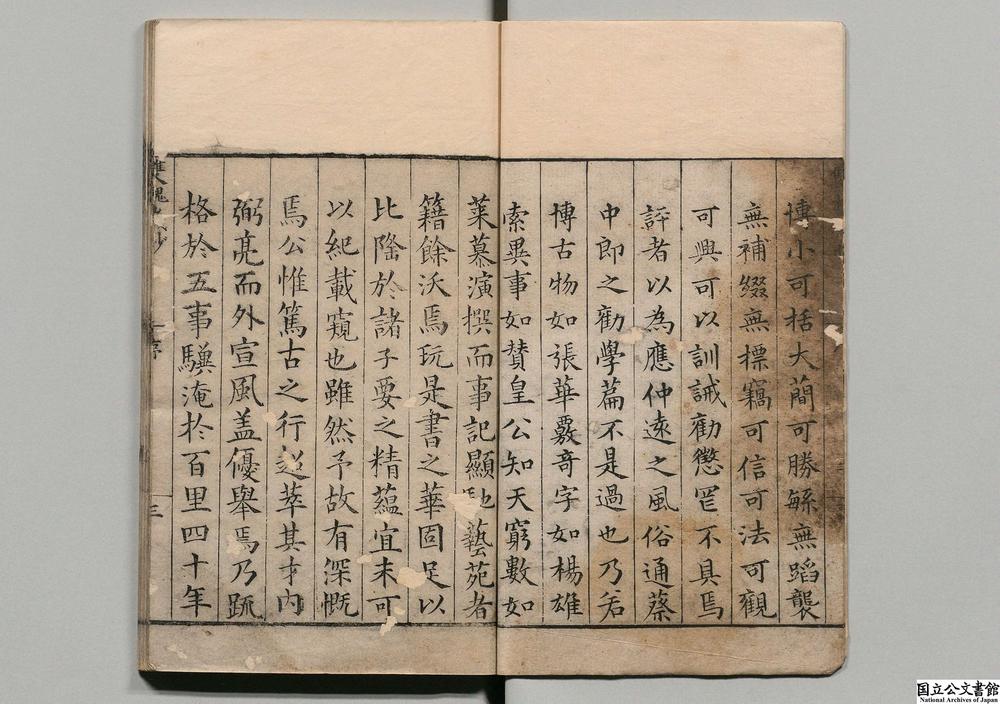 博小可括大簡可勝緐無蹈襲
無補綴無標竊可信可法可觀
可興可以訓誡勸懲罔不具焉
評者以為應仲遠之風俗通蔡
中郎之勸學篇不是過也乃若
博古物如張華覈奇字如楊雄
索異事如贊皇公知天窮數如
萊慕演撰而事記顯馳藝苑者
籍餘沃焉玩是書之華固足以
比隆於諸子要之精蘊宜未可
以紀載窺也雖然予故有深慨
焉公惟篤古之行超萃其才內
弼亮而外宣風盖優舉焉乃跡
格於五事驥淹於百里四十年
序
三
国立公文書館
National Archives of Japan